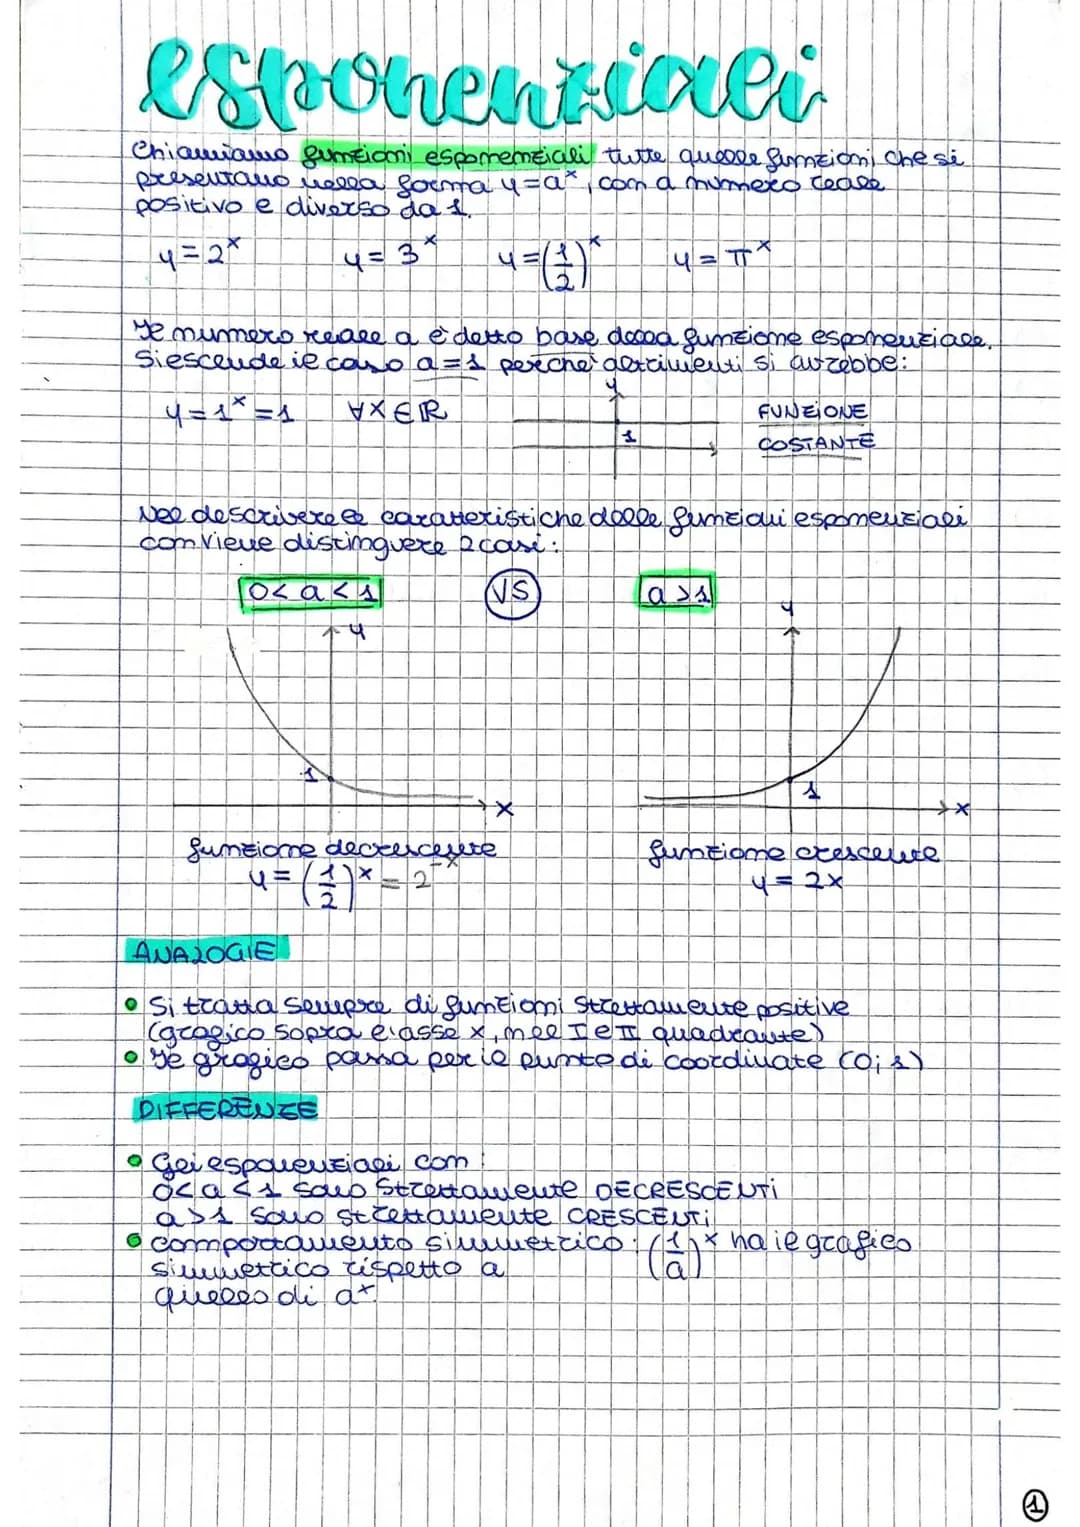 esponenziali
Chiamiamo funzioni esponenziali tutte quelle funzioni che si
presentano nella forma y=aˣ, con a numero reale
positivo e diverso da 1.
y=2ˣ y=3ˣ y=(1/2)ˣ y=πˣ
Il numero reale a è detto base della funzione esponenziale.
Si esclude il caso a=1 perché altrimenti si avrebbe:
y
y=1ˣ=1 ∀x∈ℝ FUNZIONE
1 COSTANTE
Nel descrivere le caratteristiche delle funzioni esponenziali
conviene distinguere 2 casi:
0<a<1 VS a>1
y y
1 1
x x
funzione decrescente funzione crescente
y=(1/2)ˣ=2⁻ˣ y=2x
ANALOGIE
• Si tratta sempre di funzioni strettamente positive
(grafico sopra l'asse x, nel I e II quadrante)
• Il grafico passa per il punto di coordinate (0;1)
DIFFERENZE
• Gli esponenziali con:
0<a<1 sono strettamente DECRESCENTI
a>1 sono strettamente CRESCENTI
• comportamento simmetrico: (1/a)ˣ ha il grafico
simmetrico rispetto a
quello di aˣ
1